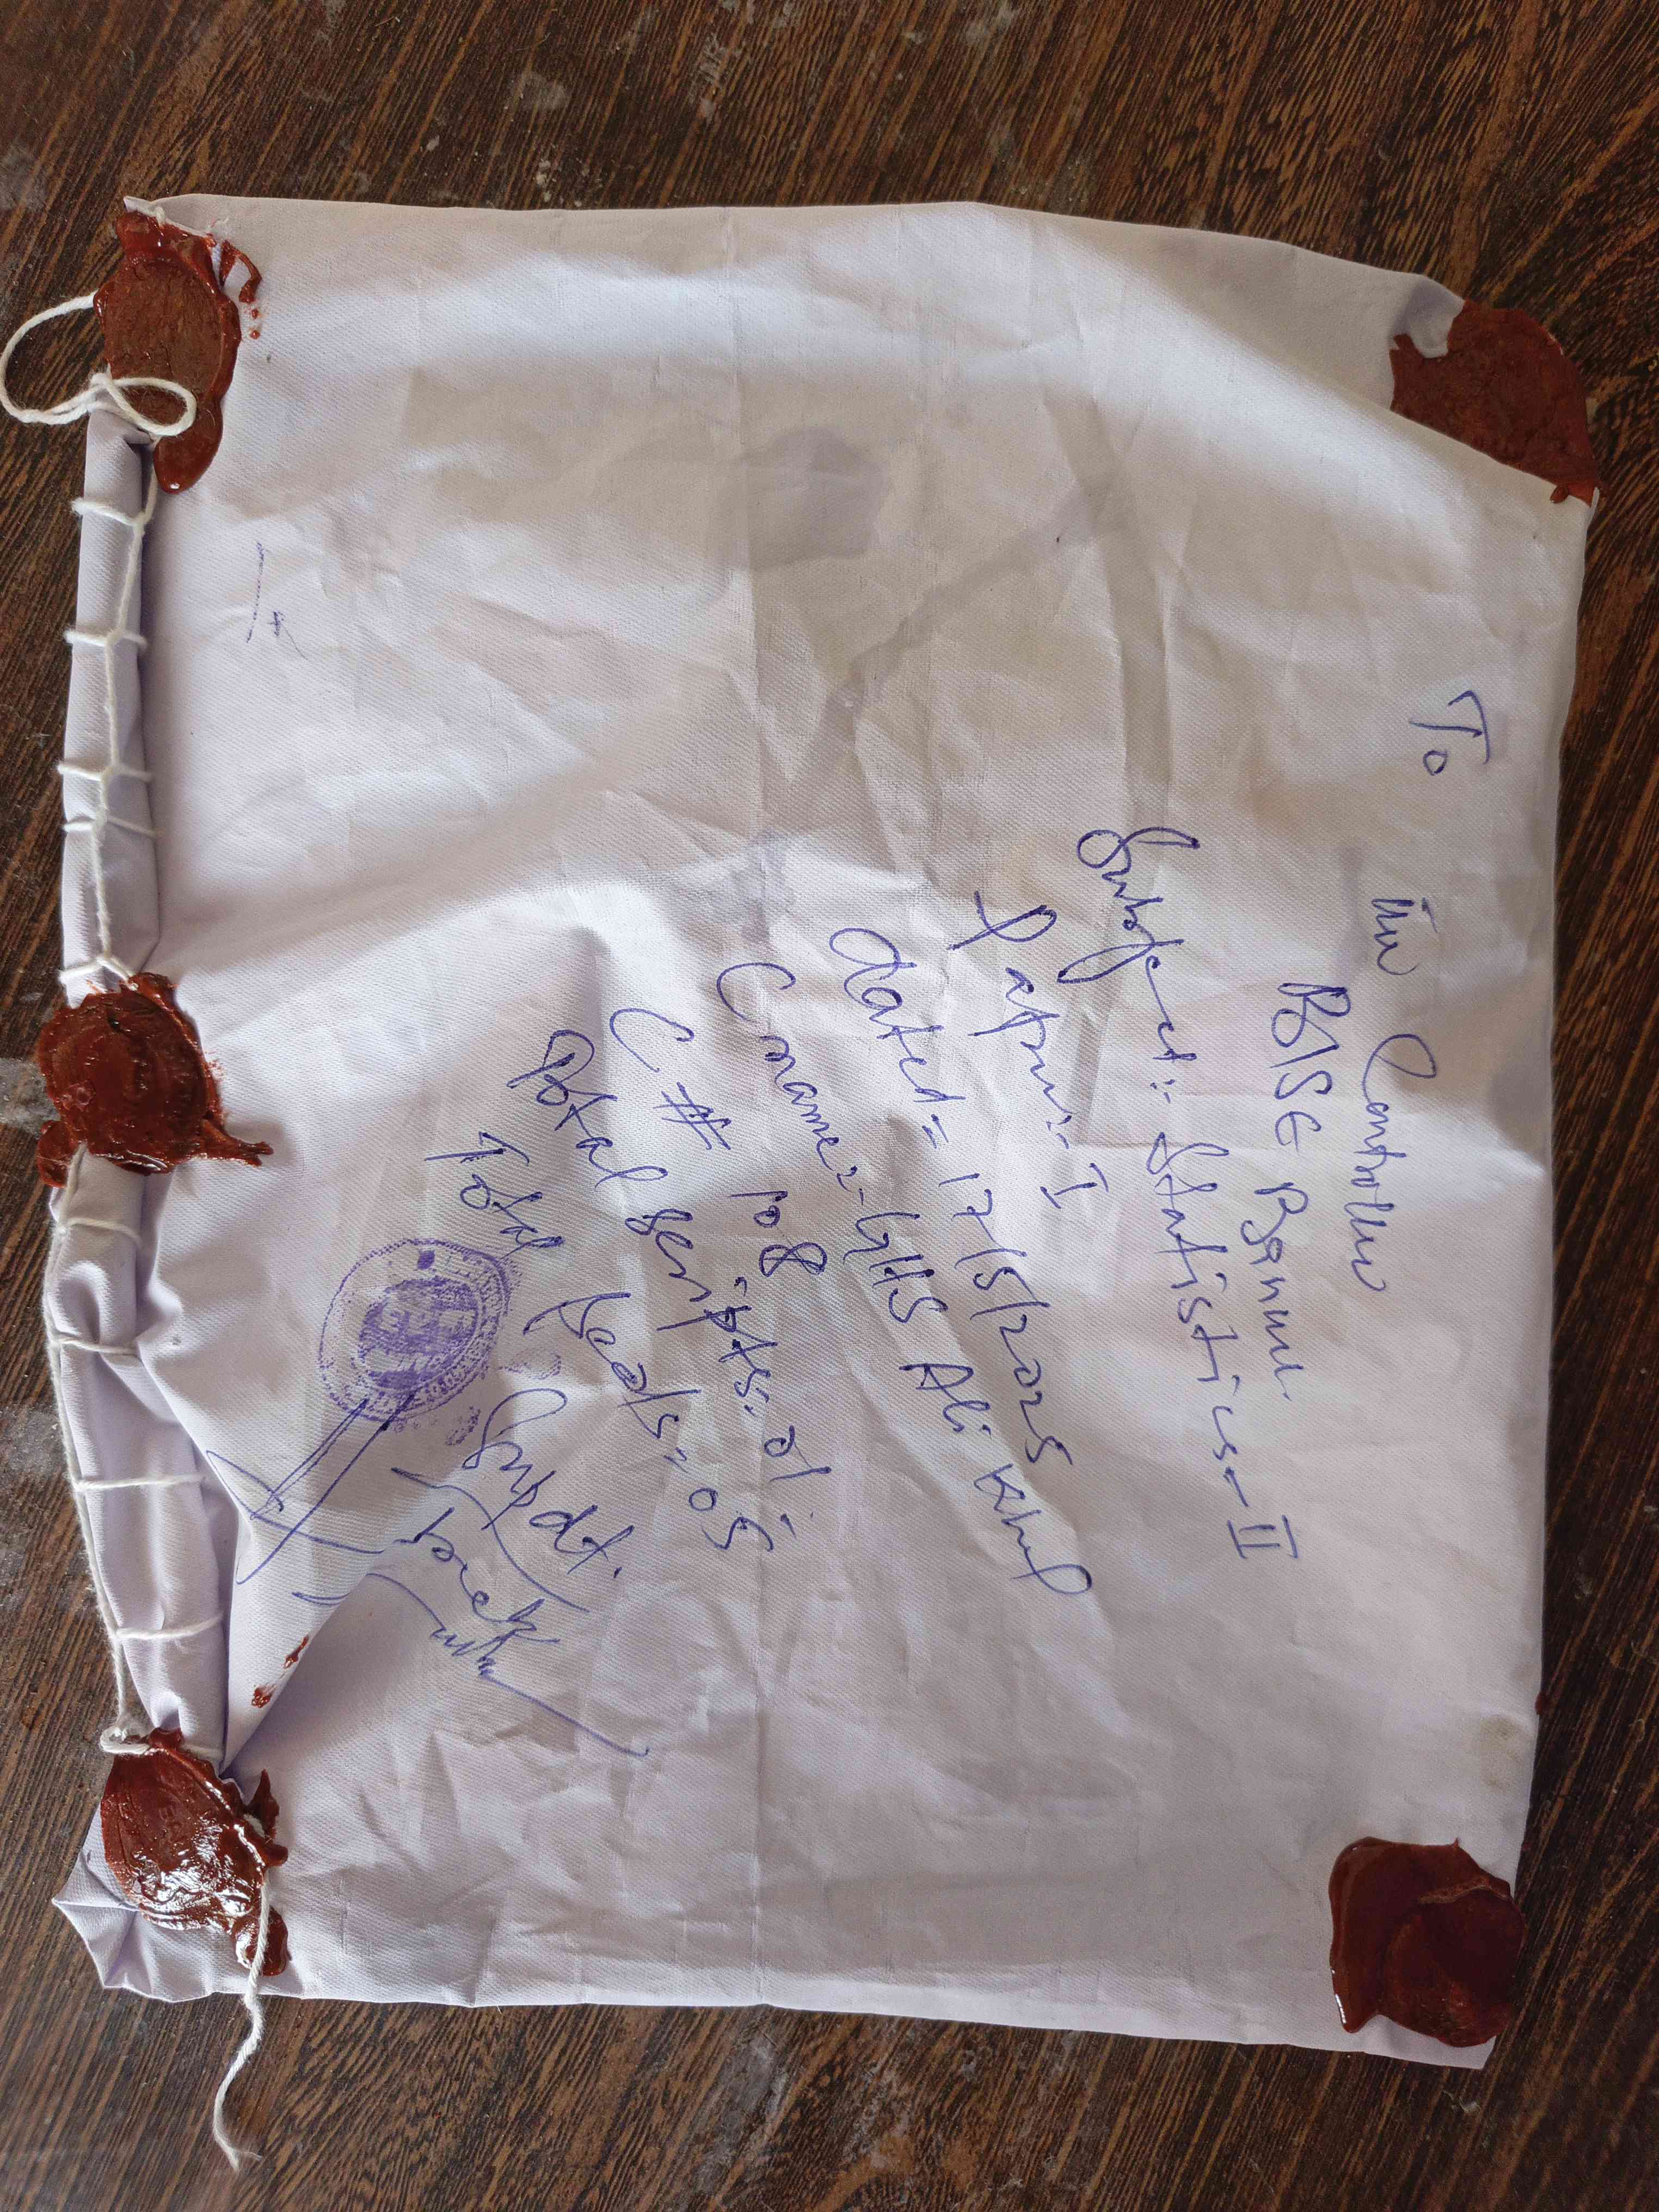 To
The Controller
BISE Bannu
Subject:- Statistics-II
Paper:- I
Dated= 17/5/2025
C name:- GHS Ali Khel
C# 108
Total Scripts= 01
Total Seats= 05
Supdt.